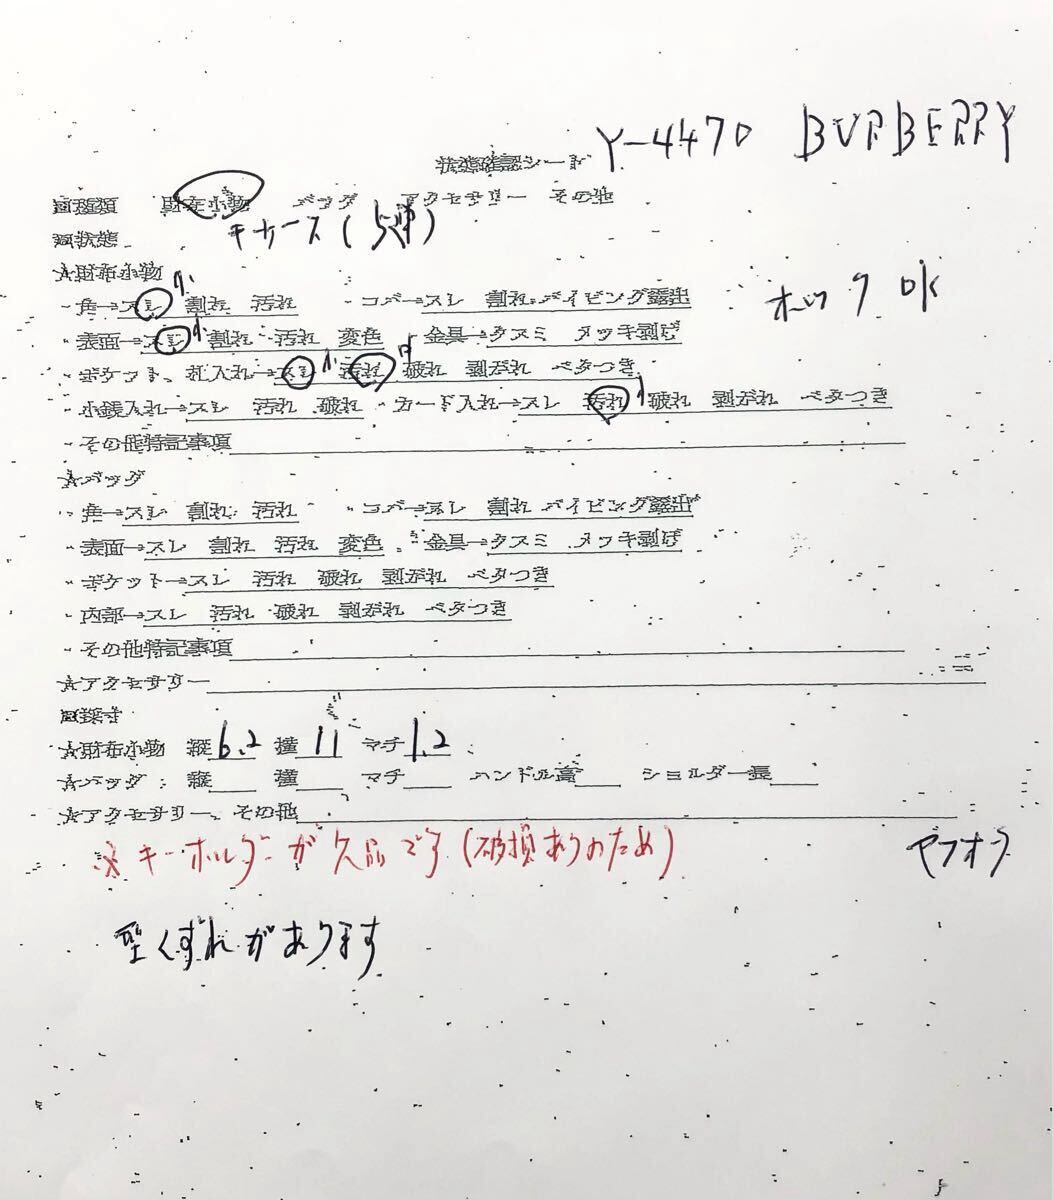 Y-4470 BURBERRY
状態確認シート
□種類 財布小物 バッグ アクセサリー その他
□状態 キーケース(5連)
★財布小物
・角→スレ 小 割れ 汚れ ・コバ→スレ 割れ パイピング露出 ホック OK
・表面→スレ 小 割れ 汚れ 変色 ・金具→クスミ メッキ剥げ
・ポケット、札入れ→スレ 小 汚れ 中 破れ 剥がれ ベタつき
・小銭入れ→スレ 汚れ 破れ ・カード入れ→スレ 汚れ 小 破れ 剥がれ ベタつき
・その他特記事項
★バッグ
・角→スレ 割れ 汚れ ・コバ→スレ 割れ パイピング露出
・表面→スレ 割れ 汚れ 変色 ・金具→クスミ メッキ剥げ
・ポケット→スレ 汚れ 破れ 剥がれ ベタつき
・内部→スレ 汚れ 破れ 剥がれ ベタつき
・その他特記事項
★アクセサリー
□採寸
★財布小物 縦6.2 横11 マチ1.2
★バッグ 縦 横 マチ ハンドル高 ショルダー長
★アクセサリー、その他
※キーホルダーが欠品です(破損ありのため) ヤフオク
型くずれがあります